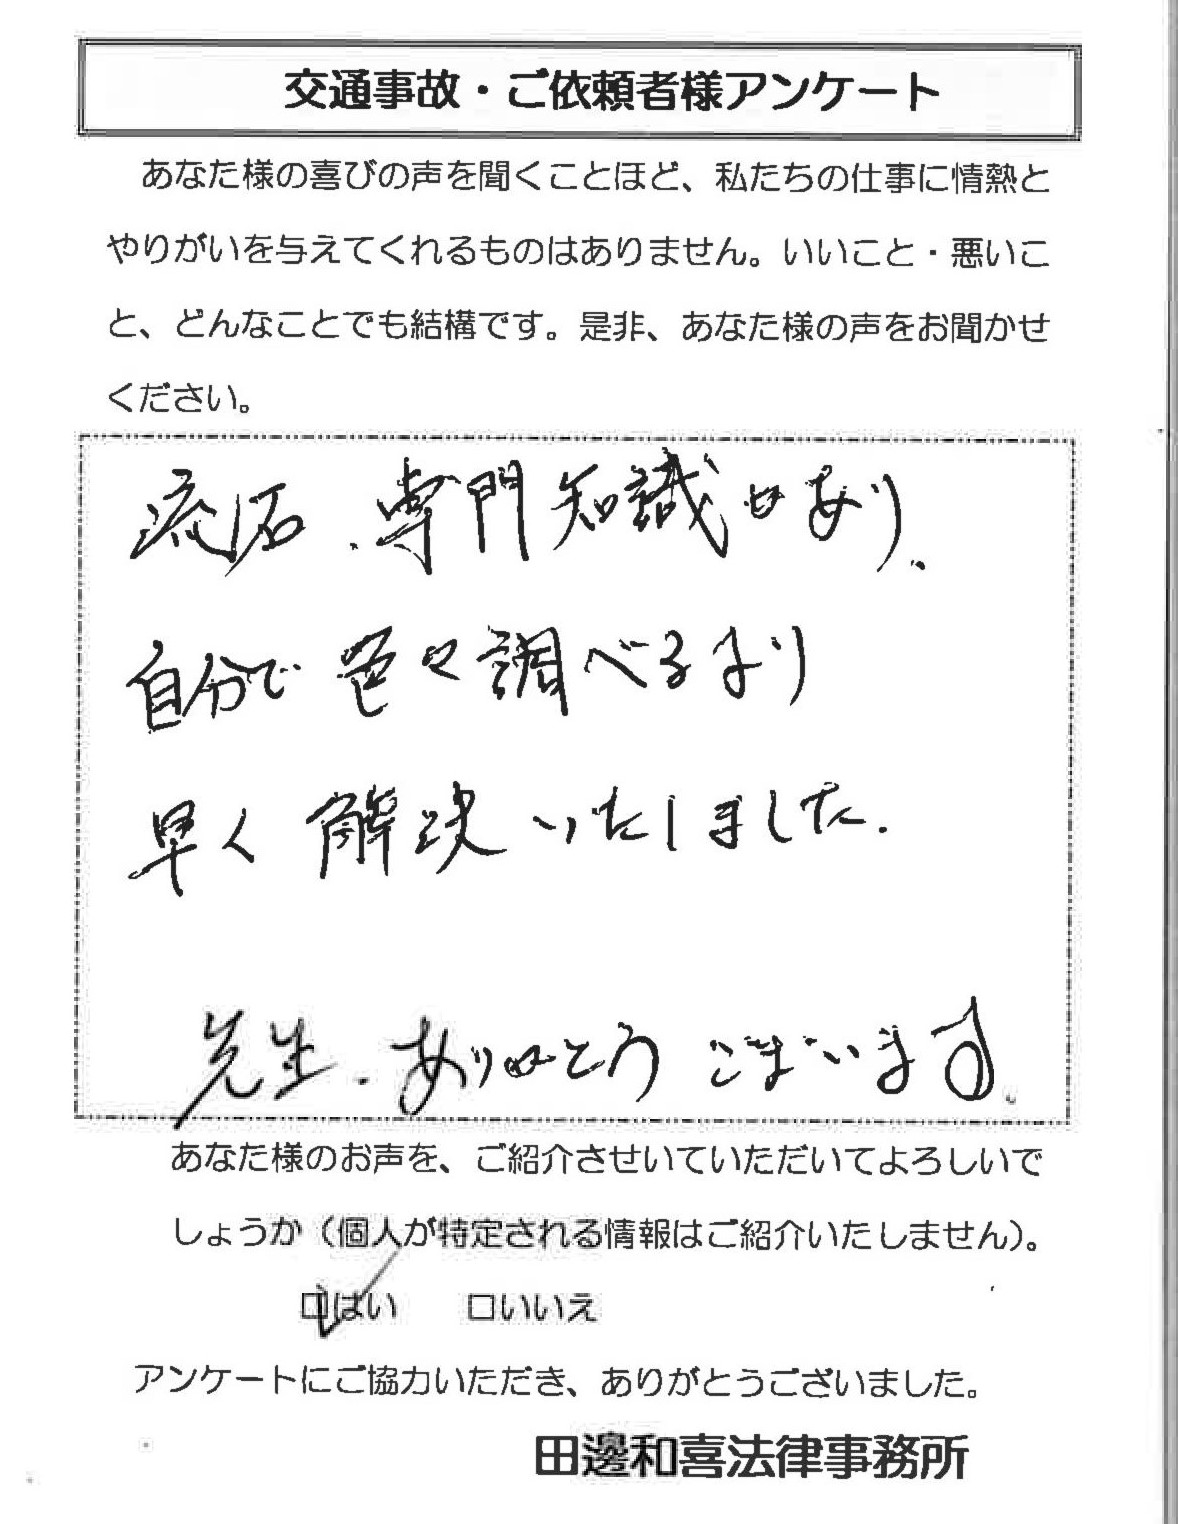 交通事故・ご依頼者様アンケート
あなた様の喜びの声を聞くことほど、私たちの仕事に情熱と
やりがいを与えてくれるものはありません。いいこと・悪いこ
と、どんなことでも結構です。是非、あなた様の声をお聞かせ
ください。
流石、専門知識があり、
自分で色々調べるより
早く解決いたしました.
先生、ありがとうございます。
あなた様のお声を、ご紹介させいていただいてよろしいで
しょうか（個人が特定される情報はご紹介いたしません）。
□はい　□いいえ
アンケートにご協力いただき、ありがとうございました。
田邊和喜法律事務所